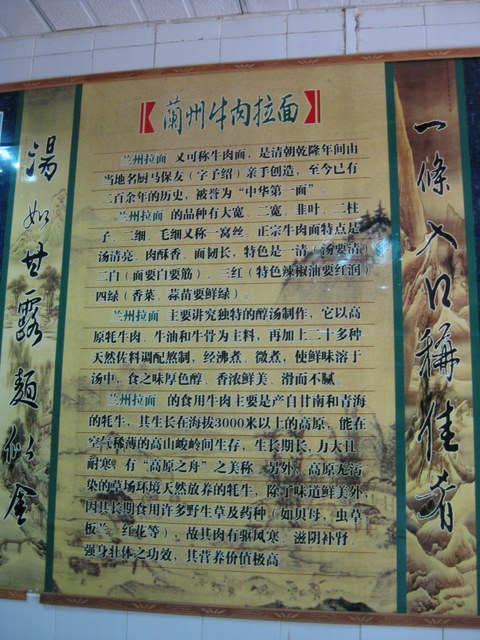 蘭州牛肉拉面
兰州拉面 又可称牛肉面，是清朝乾隆年间由
当地名厨马保友（字予绍）亲手创造，至今已有
二百余年的历史，被誉为“中华第一面”。
兰州拉面 的品种有大宽、二宽、韭叶、二柱
子、二细、毛细又称一窝丝。正宗牛肉面特点是
汤清亮、肉酥香、面韧长，特色是一清（汤要清）
二白（面要白要筋）、三红（特色辣椒油要红润）
四绿（香菜、蒜苗要鲜绿）。
兰州拉面 主要讲究独特的醇汤制作，它以高
原牦牛肉、牛油和牛骨为主料，再加上二十多种
天然佐料调配熬制，经沸煮、微煮，使鲜味溶于
汤中，食之味厚色醇、香浓鲜美、滑而不腻。
兰州拉面 的食用牛肉主要是产自甘南和青海
的牦牛，其生长在海拔3000米以上的高原，能在
空气稀薄的高山峻岭间生存，生长期长，力大且
耐寒，有“高原之舟”之美称。另外，高原无污
染的草场环境天然放养的牦牛，除了味道鲜美外，
因其长期食用许多野生草及药种（如贝母，虫草
板兰、红花等）。故其肉有驱风寒、滋阴补肾、
强身壮体之功效，其营养价值极高。
一條入口稱佳肴
湯如甘露麵似金